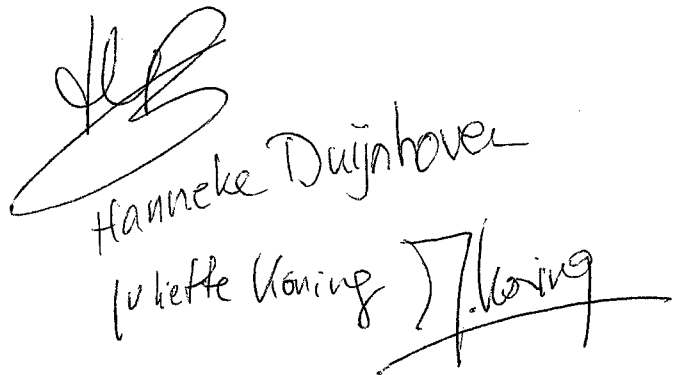 Hanneke Duijnhoven
Juliette Koning J. Koning